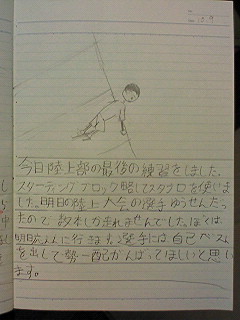 今日陸上部の最後の練習をしました。
スターティングブロック略してスタブロを使いま
した。明日の陸上大会の選手ゆうせんだっ
たので 数本しか走れませんでした。ぼくは
に行きます。選手には自己ベスト
を出して勢一配がんばってほしいと思い
ます。